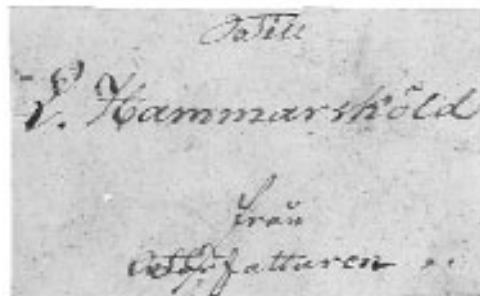 Till
L. Hammarsköld
från
Författaren